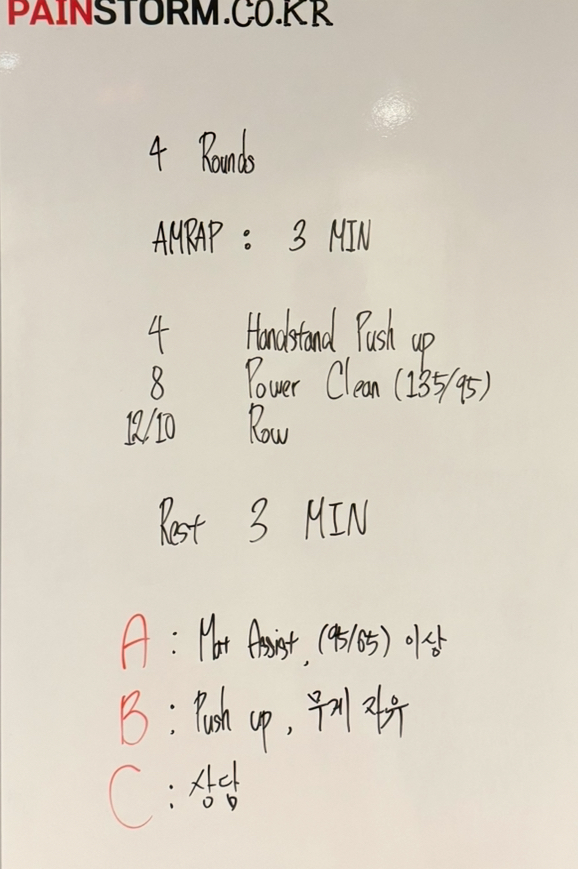 PAINSTORM.CO.KR
4 Rounds
AMRAP : 3 MIN
4 Handstand Push up
8 Power Clean (135/95)
12/10 Row
Rest 3 MIN
A : Mat Assist, (95/65) 이상
B : Push up, 무게 자유
C : 상담